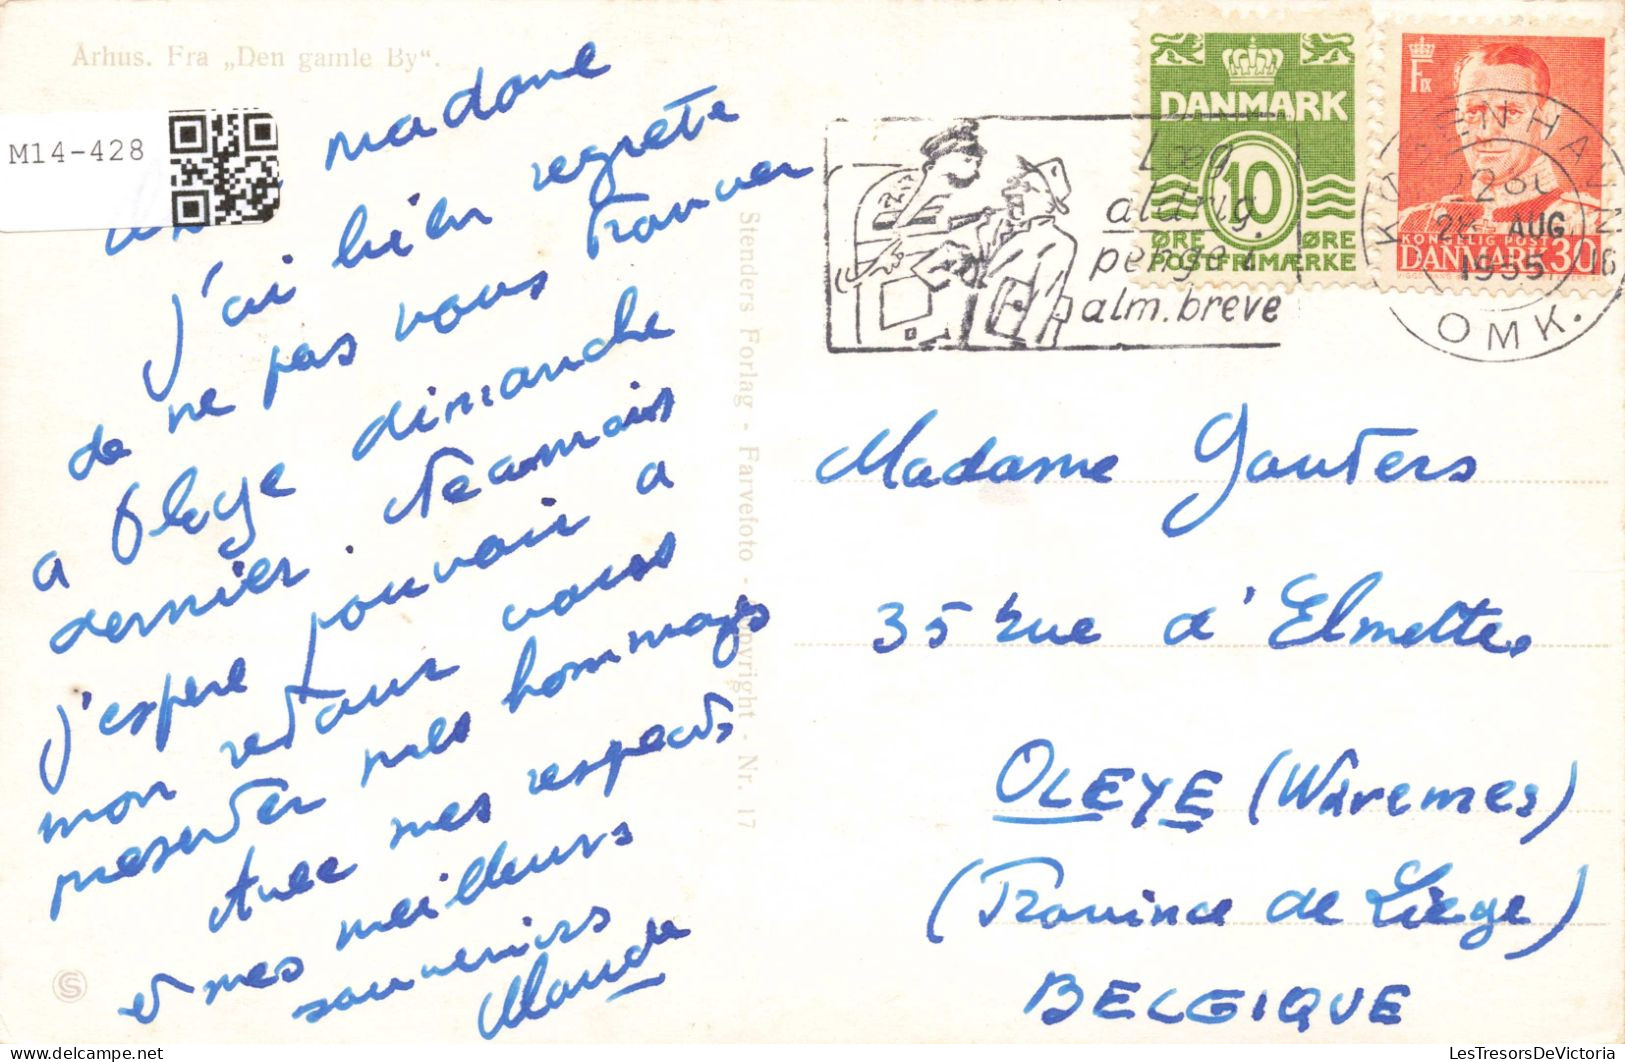 Århus. Fra „Den gamle By“.
M14-428
madame
j'ai bien regretté
de ne pas vous trouver
a Oleye dimanche
dernier.
j'espère pouvoir a
mon retour vous
presenter mes hommages
Avec mes respects
et mes meilleurs
souvenirs
Stenders Forlag - Farvefoto - Copyright - Nr. 17
Læg
aldrig
penge i
alm. breve
DANMARK
10
ØRE ØRE
POSTFRIMÆRKE
F IX
KONGELIG POST
DANMARK 30
KØBENHAVN
AUG
1955
OMK.
Madame Gauters
35 rue d'Elmette
OLEYE (Waremes)
(Province de Liège)
BELGIQUE
LesTresorsDeVictoria.com